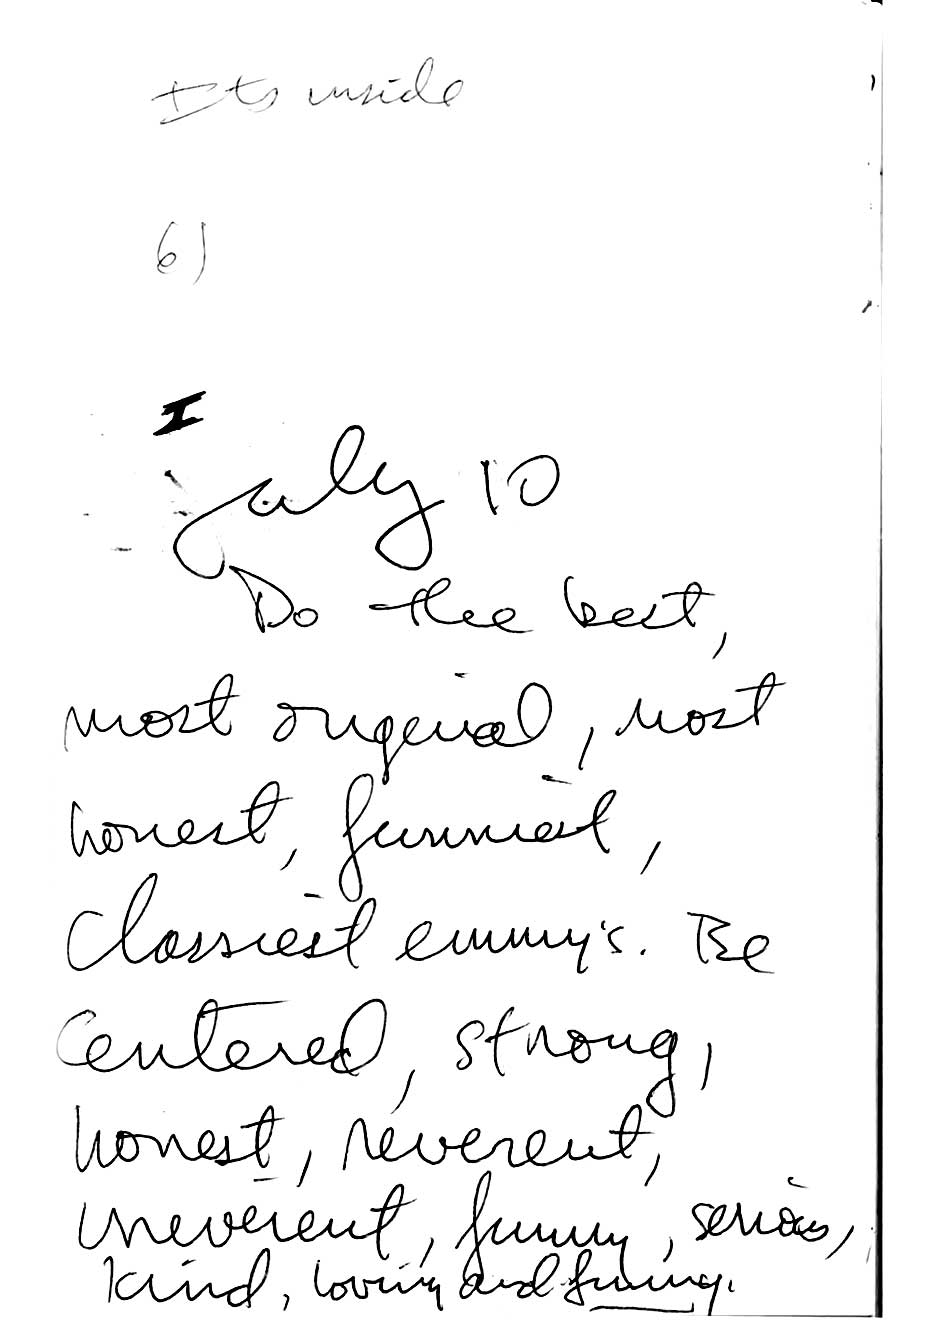 Its inside
6)
I
July 10
Do the best,
most original, most
honest, funniest,
Classiest emmy's. Be
Centered, strong,
honest, reverent,
irreverent, funny, serious,
kind, loving and funny.